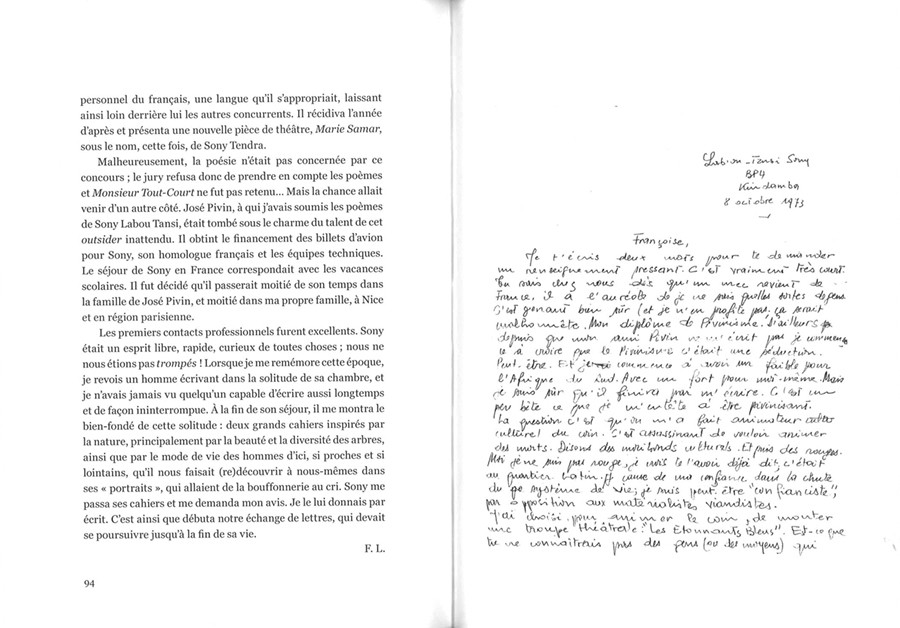 personnel du français, une langue qu'il s'appropriait, laissant
ainsi loin derrière lui les autres concurrents. Il récidiva l'année
d'après et présenta une nouvelle pièce de théâtre, Marie Samar,
sous le nom, cette fois, de Sony Tendra.
Malheureusement, la poésie n'était pas concernée par ce
concours ; le jury refusa donc de prendre en compte les poèmes
et Monsieur Tout-Court ne fut pas retenu... Mais la chance allait
venir d'un autre côté. José Pivin, à qui j'avais soumis les poèmes
de Sony Labou Tansi, était tombé sous le charme du talent de cet
outsider inattendu. Il obtint le financement des billets d'avion
pour Sony, son homologue français et les équipes techniques.
Le séjour de Sony en France correspondait avec les vacances
scolaires. Il fut décidé qu'il passerait moitié de son temps dans
la famille de José Pivin, et moitié dans ma propre famille, à Nice
et en région parisienne.
Les premiers contacts professionnels furent excellents. Sony
était un esprit libre, rapide, curieux de toutes choses ; nous ne
nous étions pas trompés ! Lorsque je me remémore cette époque,
je revois un homme écrivant dans la solitude de sa chambre, et
je n'avais jamais vu quelqu'un capable d'écrire aussi longtemps
et de façon ininterrompue. À la fin de son séjour, il me montra le
bien-fondé de cette solitude : deux grands cahiers inspirés par
la nature, principalement par la beauté et la diversité des arbres,
ainsi que par le mode de vie des hommes d'ici, si proches et si
lointains, qu'il nous faisait (re)découvrir à nous-mêmes dans
ses « portraits », qui allaient de la bouffonnerie au cri. Sony me
passa ses cahiers et me demanda mon avis. Je le lui donnais par
écrit. C'est ainsi que débuta notre échange de lettres, qui devait
se poursuivre jusqu'à la fin de sa vie.
F. L.
94
Tansi Sony
BP4
Kindamba
8 octobre 1973
Françoise,
Je t'écris deux mots pour te demander
un renseignement pressant. C'est vraiment très court.
Tu sais chez nous dès qu'un mec revient de
France, il a l'auréole de je ne sais quelles sortes
C'est gênant bien sûr (et je n'en profite pas, ça serait
malhonnête. Mon diplôme de Pivinisme. D'ailleurs
depuis que mon ami Pivin ne m'écrit pas je commen
ce à croire que le Pivinisme c'était une séduction.
Peut-être. Et commence à avoir un faible pour
l'Afrique du sud. Avec un fort pour moi-même. Mais
je suis sûr qu'il finira par m'écrire. C'est un
peu bête ce que je m'entête à être pivinisant.
La question c'est qu'on m'a fait animateur
culturel du coin. C'est assassinant de vouloir animer
des morts. Disons des moribonds culturels. Et puis des rouges.
Moi je ne suis pas rouge, je crois te l'avoir déjà dit, c'était
au quartier Latin. cause de ma confiance dans la chute
du système de vie, je suis peut-être "confianciste",
par opposition aux matérialistes viandistes.
J'ai choisi pour animer le coin, de monter
une troupe théâtrale "Les Étonnants Bleus". Est-ce que
tu ne connaîtrais pas des gens (ou des moyens) qui